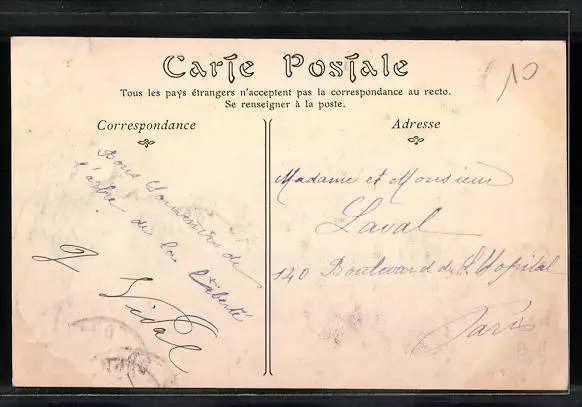 10
Carte Postale
Tous les pays étrangers n'acceptent pas la correspondance au recto.
Se renseigner à la poste.
Correspondance
Bons Souvenirs de
l'arbre de la Liberté
J Vidal
Adresse
Madame et Monsieur
Laval
140 Boulevard de L'Hopital
Paris